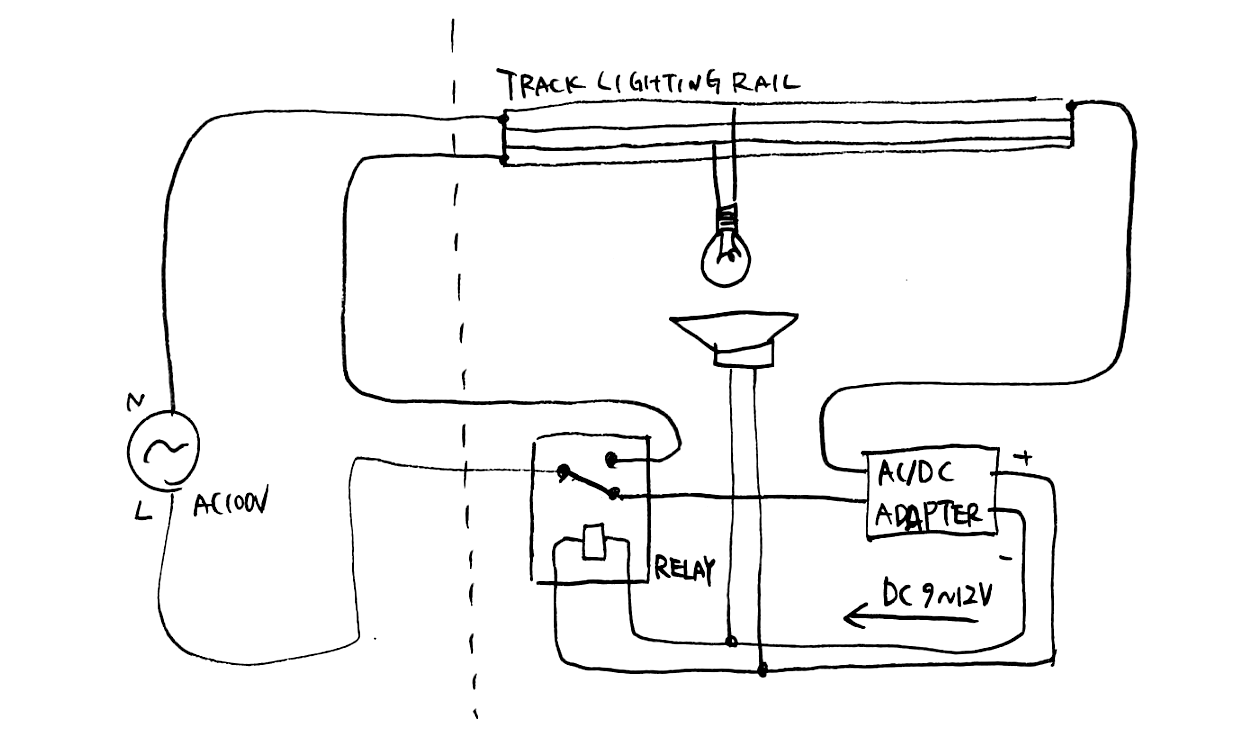 TRACK LIGHTING RAIL
N
L
AC100V
RELAY
AC/DC
ADAPTER
+
-
DC 9~12V